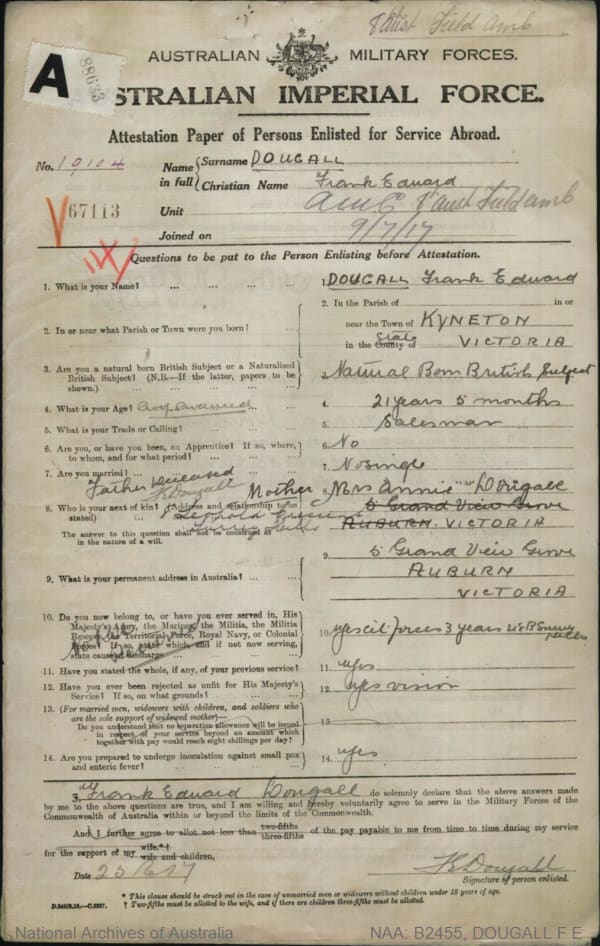 8th Aust Field Amb
A
88633
AUSTRALIAN MILITARY FORCES.
STRALIAN IMPERIAL FORCE.
Attestation Paper of Persons Enlisted for Service Abroad.
No. 19104 Name in full { Surname DOUGALL
Christian Name Frank Edward
V67113 Unit A.M.C. 8 Aust Field Amb
Joined on 9/7/17
Questions to be put to the Person Enlisting before Attestation.
1. What is your Name? ... ... ... 1. DOUGALL Frank Edward
2. In or near what Parish or Town were you born? ... 2. In the Parish of in or
near the Town of KYNETON
in the County of State VICTORIA
3. Are you a natural born British Subject or a Naturalized British Subject? (N.B.—If the latter, papers to be shown.) ... 3. Natural Born British Subject
4. What is your Age? ... 4. 21 years 5 months
5. What is your Trade or Calling? ... 5. Salesman
6. Are you, or have you been, an Apprentice? If so, where, to whom, and for what period? ... 6. No
7. Are you married? ... 7. No single
Father Deceased
FEDougall
8. Who is your next of kin? (Address and relationship to be stated) Mother 8. Mrs Annie Dougall
5 Grand View Grove
AUBURN. VICTORIA
The answer to this question shall not be construed as in the nature of a will.
9. What is your permanent address in Australia? ... 9. 5 Grand View Grove
AUBURN
VICTORIA
10. Do you now belong to, or have you ever served in, His Majesty's Army, the Marines, the Militia, the Militia Reserve, the Territorial Force, Royal Navy, or Colonial Forces? If so, state which, and if not now serving, state cause of discharge 10. yes cit forces 3 years Surrey Hills
11. Have you stated the whole, if any, of your previous service? 11. yes
12. Have you ever been rejected as unfit for His Majesty's Service? If so, on what grounds? ... 12. yes vision
13. (For married men, widowers with children, and soldiers who are the sole support of widowed mother)—
Do you understand that no separation allowance will be issued in respect of your service beyond an amount which together with pay would reach eight shillings per day? 13.
14. Are you prepared to undergo inoculation against small pox and enteric fever? ... 14. yes
I, Frank Edward Dougall do solemnly declare that the above answers made
by me to the above questions are true, and I am willing and hereby voluntarily agree to serve in the Military Forces of the
Commonwealth of Australia within or beyond the limits of the Commonwealth.
And I further agree to allot not less than two-fifths three-fifths of the pay payable to me from time to time during my service
for the support of my wife.*† wife and children,
Date 25 6 17 FEDougall
Signature of person enlisted.
* This clause should be struck out in the case of unmarried men or widowers without children under 18 years of age.
† Two-fifths must be allotted to the wife, and if there are children three-fifths must be allotted.
National Archives of Australia NAA: B2455, DOUGALL F E